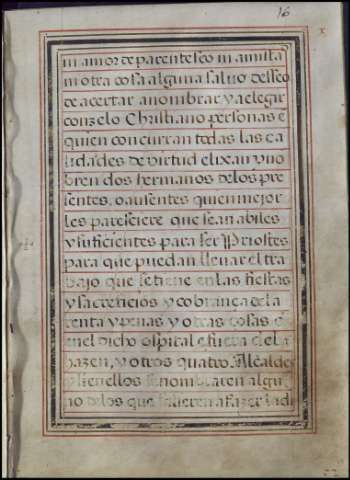 16
ni amor de parentesco ni amista
ni otra cosa alguna salvo desseo
de acertar a nombrar y a elegir
con zelo Christiano personas e
quien concurran todas las ca
lidades de virtud elixan y no
bren dos hermanos delos pre
sentes, o ausentes quien mejor
les paresciere que sean abiles
y suficientes para ser Priostes
para que puedan llevar el tra
bajo que se tiene en las fiestas
y sacreficios y cobrança de la
renta y penas y otras cosas e
nuel dicho ospital e fuera del a
hazen, y otros quatro Alcaldes
y si en ellos se nombraren algu
no delos que salieren a fazer la di